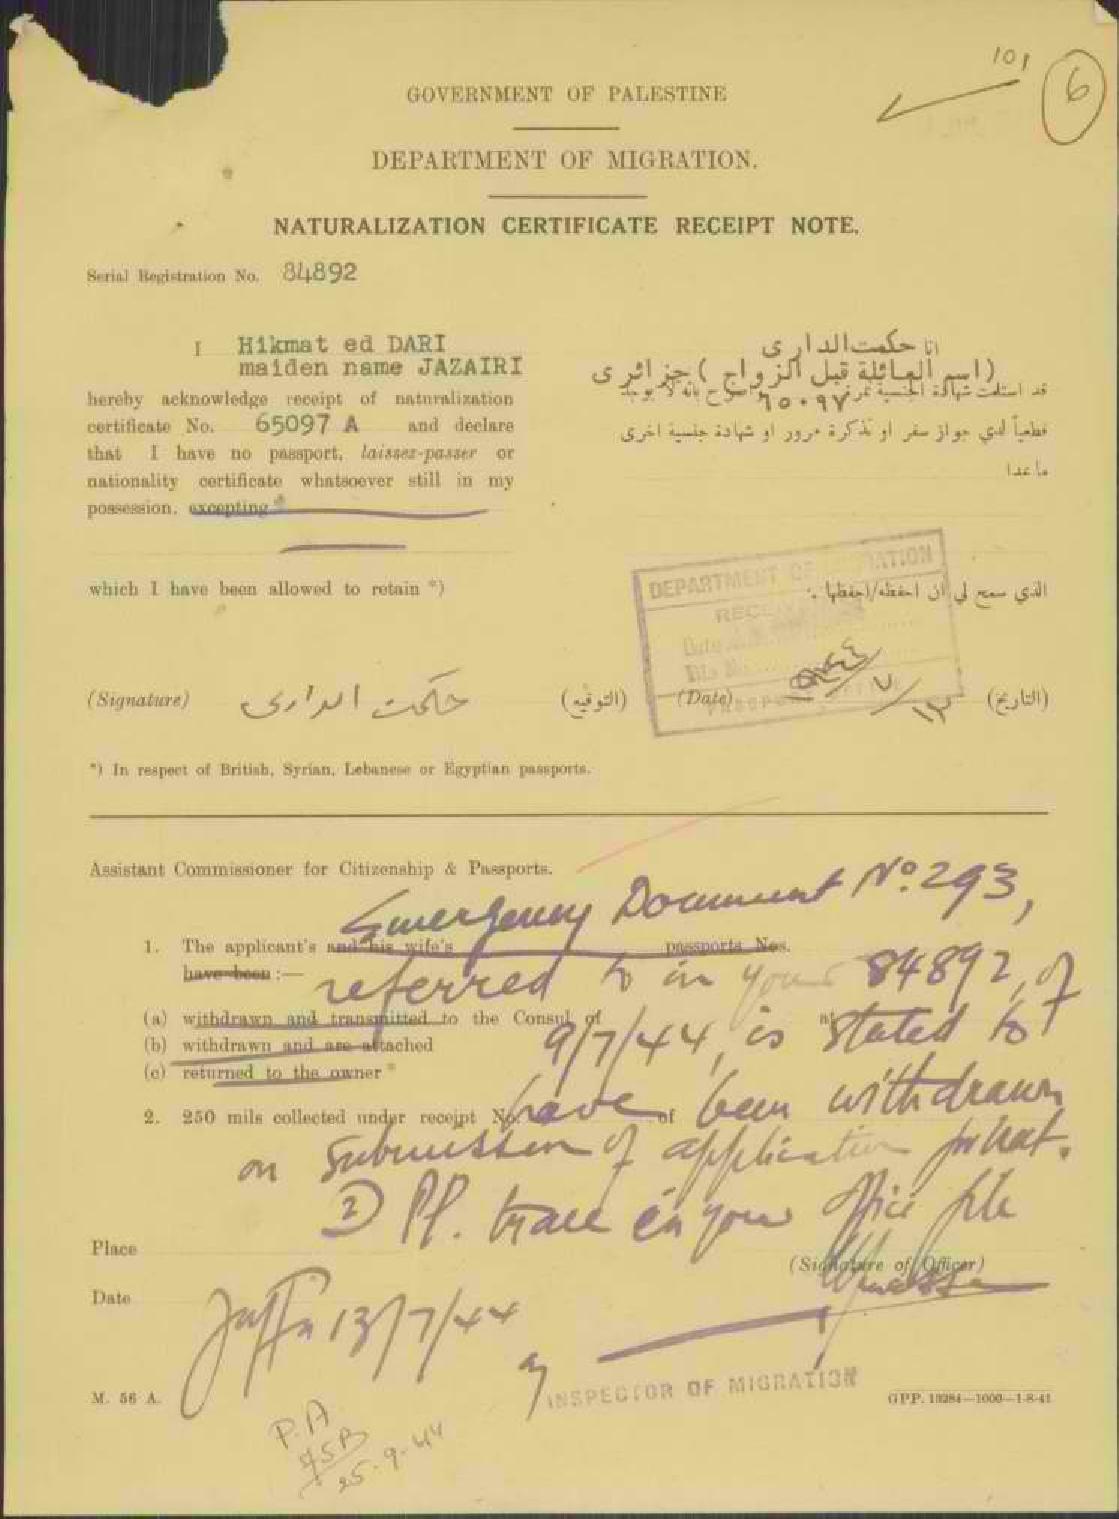 101
6
GOVERNMENT OF PALESTINE
DEPARTMENT OF MIGRATION.
NATURALIZATION CERTIFICATE RECEIPT NOTE.
Serial Registration No. 84892
I Hikmat ed DARI
maiden name JAZAIRI
hereby acknowledge receipt of naturalization
certificate No. 65097 A and declare
that I have no passport, laissez-passer or
nationality certificate whatsoever still in my
possession, excepting *
which I have been allowed to retain *)
انا حكمت الدارى
(اسم العائلة قبل الزواج) جزائرى
قد استلمت شهادة الجنسية نمرة ٦٥٠٩٧ اصرح بانه لا يوجد
قطعياً لدي جواز سفر او تذكرة مرور او شهادة جنسية اخرى
ما عدا
الذي سمح لي ان احفظه/احفظها .
DEPARTMENT OF MIGRATION
RECEIVED
Date
File No.
PASSPORT OFFICE
(Signature) حكمت الدارى (التوقيع) (Date) ١٣/٧/٩٤٤ (التاريخ)
*) In respect of British, Syrian, Lebanese or Egyptian passports.
Assistant Commissioner for Citizenship & Passports.
Emergency Document No. 293,
1. The applicant's and his wife's passports Nos.
have been :—
referred to in your 84892, of
(a) withdrawn and transmitted to the Consul of at
(b) withdrawn and are attached
9/7/44, is stated to
(c) returned to the owner *
2. 250 mils collected under receipt No. of
have been withdrawn
on submission of application for nat.
2) Pl. trace in your office file
Place
(Signature of Officer)
Date
Jaffa 13/7/44
INSPECTOR OF MIGRATION
M. 56 A.
GPP. 10284—1000—1-8-41
P.A
25-9-44